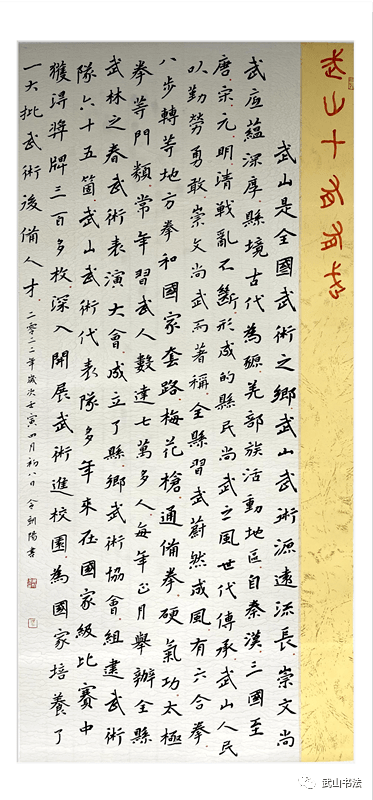 武山十有有者
武山是全國武術之鄉武山武術源遠流長崇文尚
武底蘊深厚縣境古代為獂羌部族活動地區自秦漢三國至
唐宋元明清戰亂不斷形成的縣民尚武之風世代傳承武山人民
以勤勞勇敢崇文尚武而著稱全縣習武蔚然成風有六合拳
八步轉等地方拳和國家套路梅花槍通備拳硬氣功太極
拳等門類常年習武人數達七萬多人每年正月舉辦全縣
武林之春武術表演大會成立了縣鄉武術協會組建武術
隊六十五箇武山武術代表隊多年來在國家級比賽中
獲得獎牌三百多枚深入開展武術進校園為國家培養了
一大批武術後備人才
二零二二年歲次壬寅四月初八日令朝陽書
武山书法